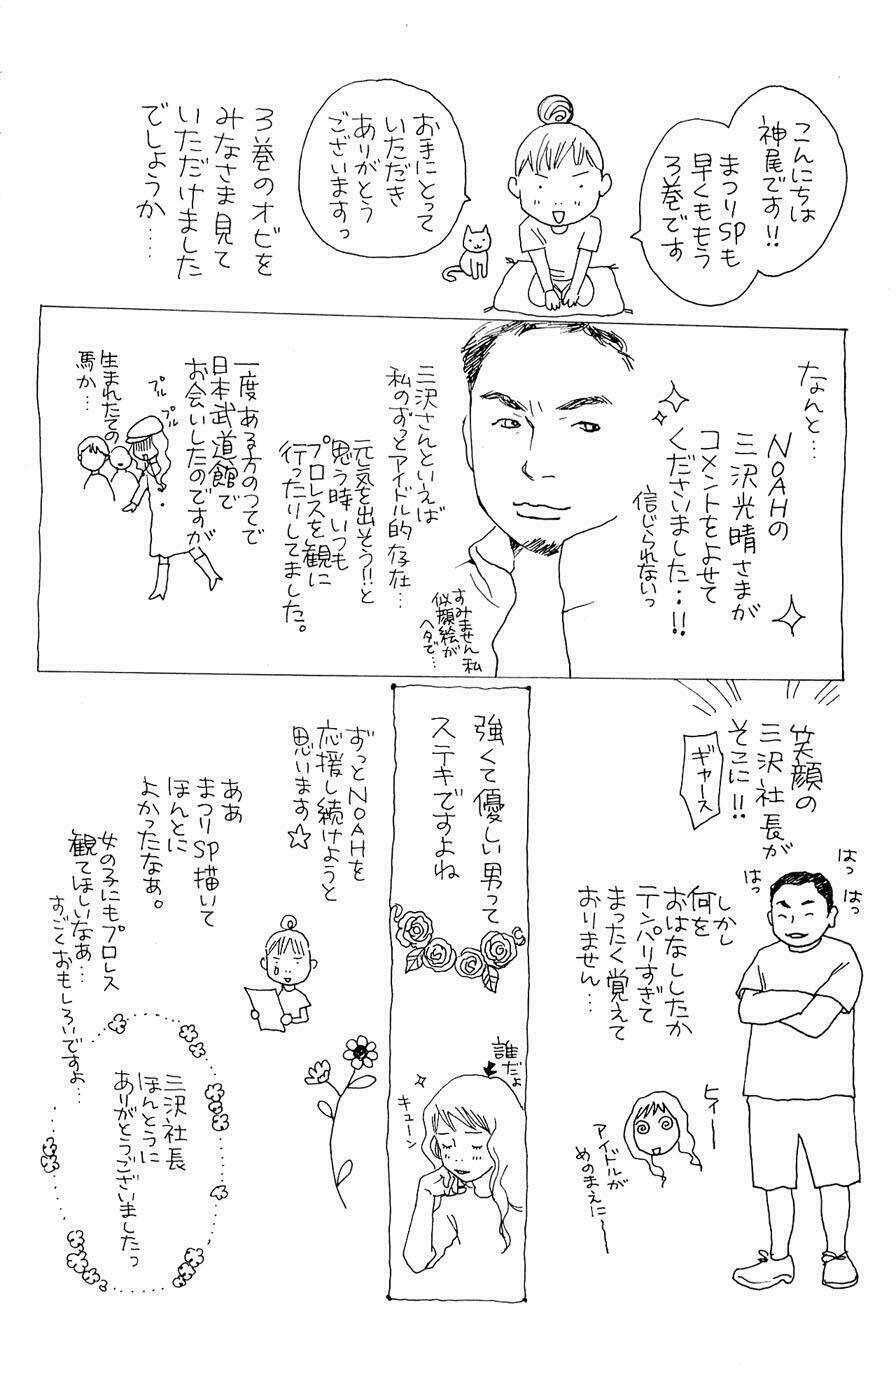 こんにちは
神尾です!!
まつりSPも
早くももう
3巻です
おまにとって
いただき
ありがとう
ございますっ
3巻のオビを
みなさま見て
いただけました
でしょうか……
なんと…
NOAHの
三沢光晴さまが
コメントをよせて
くださいました…!!
信じられないっ
すみません私
似顔絵が
ヘタで…
三沢さんといえば
私のずっとアイドル的存在…
元気を出そう!!と
思う時いつも
プロレスを観に
行ったりしてました。
一度ある方のつてで
日本武道館で
お会いしたのですが
プル
プル
生まれたての
馬か…
笑顔の
三沢社長が
そこに!!
ギャース
はっ
はっ
はっ
しかし
何を
おはなししたか
テンパリすぎて
まったく覚えて
おりません…
ヒィー
アイドルが
めのまえに〜
強くて優しい男って
ステキですよね
誰だよ
キューン
ずっとNOAHを
応援し続けようと
思います☆
ああ
まつりSP描いて
ほんとに
よかったなぁ。
女の子にもプロレス
観てほしいなぁ…
すごくおもしろいですよ…
三沢社長
ほんとうに
ありがとうございましたっ